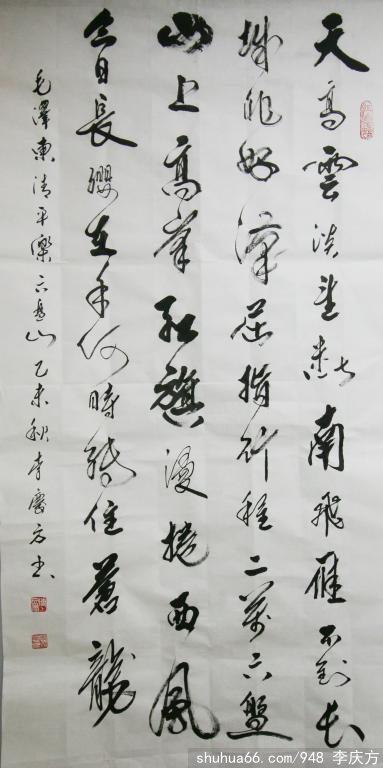 天高雲淡望斷南飛雁不到長
城非好漢屈指行程二萬六盤
山上高峯紅旗漫捲西風
今日長纓在手何時縛住蒼龍
毛澤東清平樂六盤山乙未秋李慶方书
shuhua66.com/948 李庆方